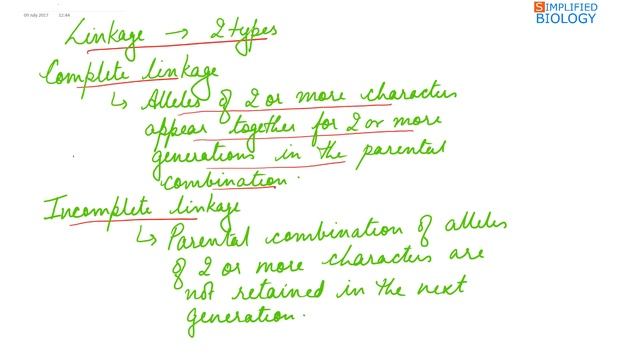 09 July 2017 12:44
SIMPLIFIED
BIOLOGY
Linkage → 2 types
Complete linkage
↳ Alleles of 2 or more characters
appear together for 2 or more
generations in the parental
combination.
Incomplete linkage
↳ Parental combination of alleles
of 2 or more characters are
not retained in the next
generation.